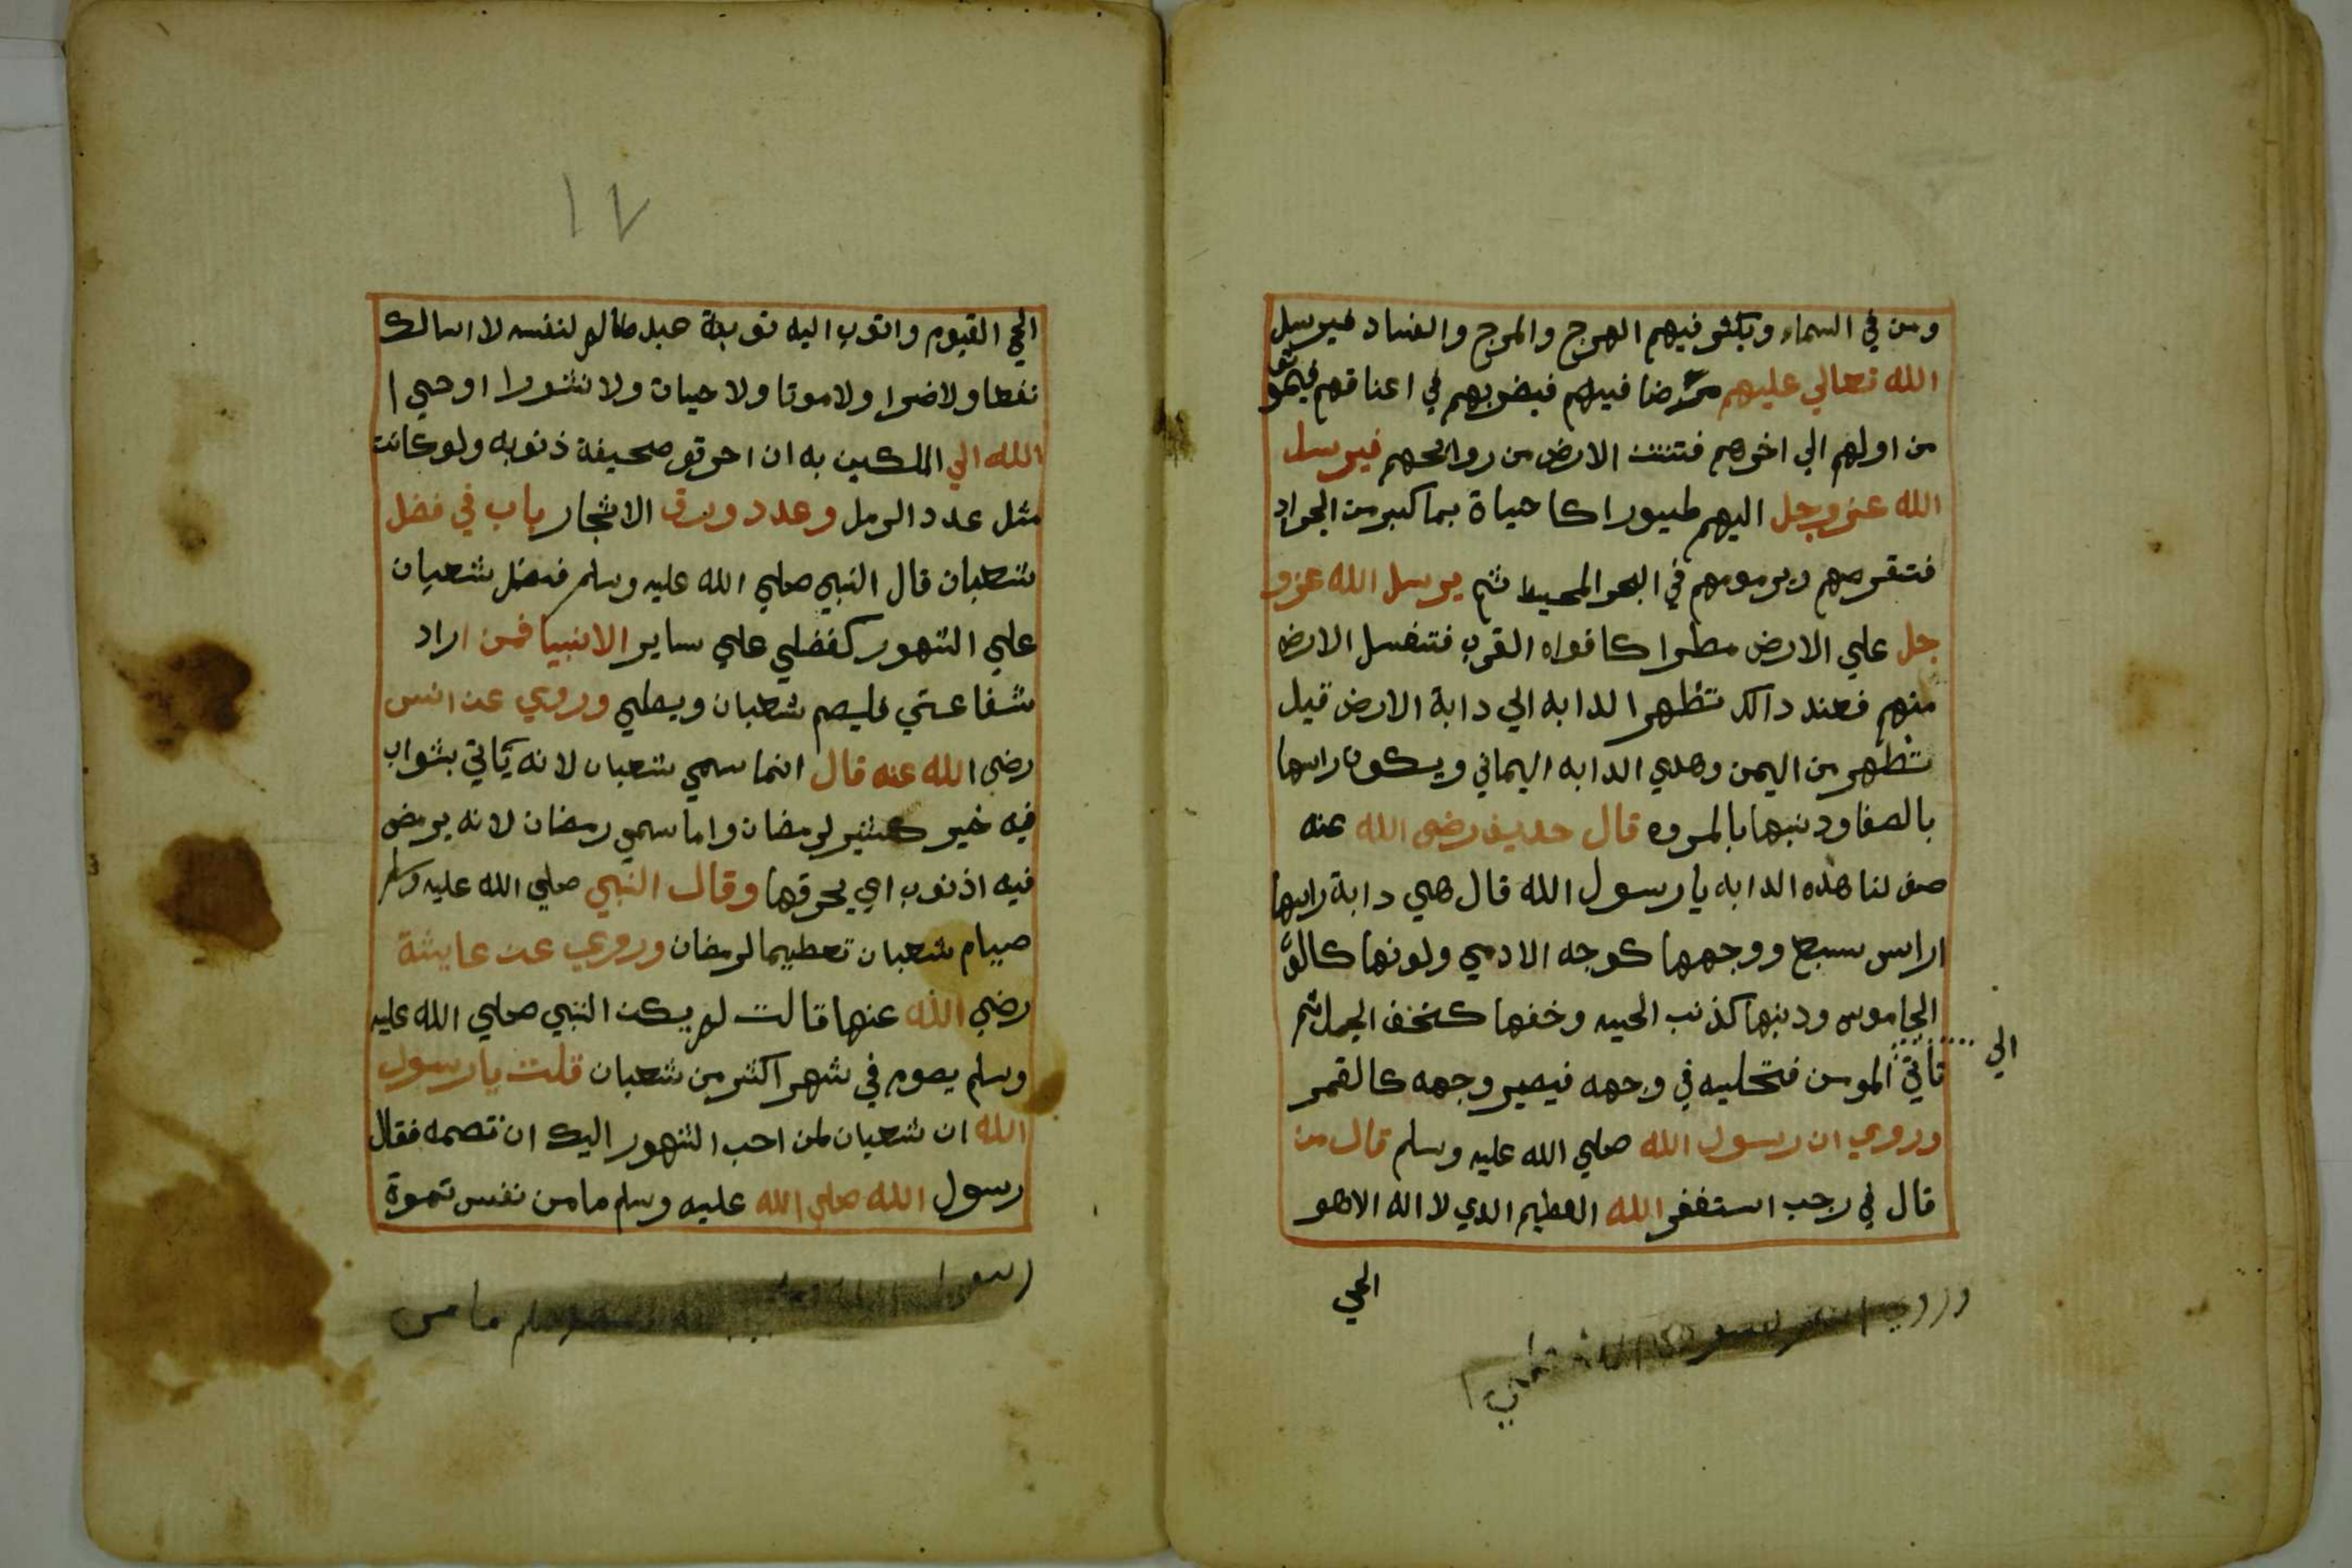 ومن في السماء ويكثر فيهم الهرج والمرج والفساد فيرسل
الله تعالي عليهم مرضا فيهم فيضربهم في اعناقهم فيموتو
من اولهم الي اخرهم فتنتن الارض من روايحهم فيرسل
الله عز وجل اليهم طيورا كا حياة بما كبر من الجراد
فتقرصهم ويرمومهم في البحر المحيط ثم يرسل الله عز و
جل علي الارض مطرا كافواه القرب فتغسل الارض
منهم فعند دالك تظهر الدابه الي دابة الارض قيل
تظهر من اليمن وهدي الدابه اليماني ويكون راسها
بالصفا ودنبها بالمروه قال حديف رضي الله عنه
صف لنا هذه الدابه يا رسول الله قال هي دابة راسها
اراس سبع ووجهها كوجه الادمي ولونها كالو
الجاموس ودنبها كذنب الحيه وخفها كخف الجمل ثم
تاتي الي المومن فتحليه في وجهه فيصير وجهه كالقمر
وروي ان رسول الله صلي الله عليه وسلم قال من
قال في رجب استغفر الله العظيم الدي لا اله الاهو
الحي
١٧
الحي القيوم واتوب اليه توبة عبد ظالم لنفسه لا امالك
نفعا ولا ضرا ولا موتا ولا حيات ولا نشورا اوحي ا
الله الي الملكين به ان احرقو صحيفة ذنوبه ولو كانت
مثل عدد الرمل وعدد ورق الاشجار باب في فضل
شعبان قال النبي صلي الله عليه وسلم فضل شعبان
علي الشهور كفضلي علي ساير الانبيا فمن اراد
شفاعتي فليصم شعبان ويصلي وروي عن انس
رضي الله عنه قال انما سمي شعبان لانه ياتي بثواب
فيه خير كثير لرمضان واما سمي رمضان لانه يرمض
فيه اذنوب اي يحرقها وقال النبي صلي الله عليه وسلم
صيام شعبان تعطيما لرمضان وروي عن عايشة
رضي الله عنها قالت لم يكن النبي صلي الله عليه
وسلم يصوم في شهر اكثر من شعبان قلت يا رسول
الله ان شعبان لمن احب الشهور اليك ان تصمه فقال
رسول الله صلي الله عليه وسلم ما من نفس تموة
ما من